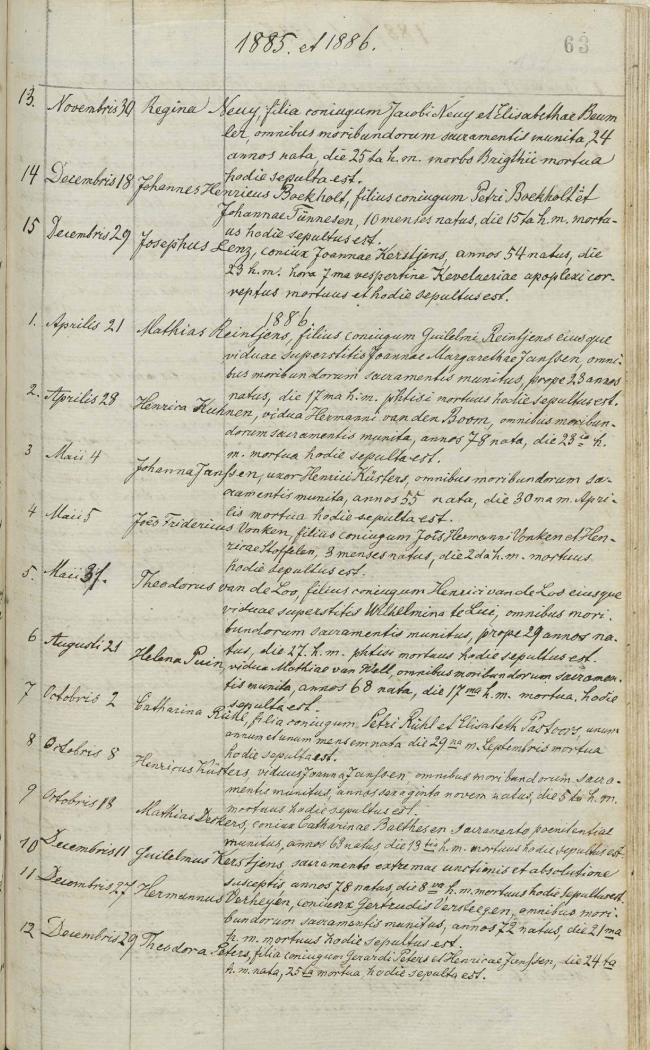 1885. et 1886.
63
13. Novembris 30 Regina Neuy, filia coniugum Jacobi Neuy et Elisabethae Beum
ler, omnibus moribundorum sacramentis munita, 24
annos nata, die 25ta h. m. morbo Brigthii mortua
hodie sepulta est.
14 Decembris 18 Johannes Henricus Boekholt, filius coniugum Petri Boekholt et
Johannae Tünnesen, 10 menses natus, die 15ta h. m. mortu-
us hodie sepultus est.
15 Decembris 29 Josephus Lenz, coniux Joannae Kerstjens, annos 54 natus, die
23 h. m. hora 7ma vespertine Kevelaeriae apoplexi cor-
reptus mortuus et hodie sepultus est.
1886.
1. Aprilis 21 Mathias Reintjens, filius coniugum Guilelmi Reintjens eiusque
viduae superstitis Joannae Margarethae Janssen, omni-
bus moribundorum sacramentis munitus, prope 23 annos
natus, die 17ma h. m. phtisi mortuus hodie sepultus est.
2. Aprilis 28 Henrica Kuhnen, vidua Hermanni van den Boom, omnibus moribun-
dorum sacramentis munita, annos 78 nata, die 23tia h.
m. mortua hodie sepulta est.
3 Maii 4 Johanna Janssen, uxor Henrici Küsters, omnibus moribundorum sa-
cramentis munita, annos 55 nata, die 30ma m. Apri-
lis mortua hodie sepulta est.
4 Maii 5 Joēs Fridericus Vonken, filius coniugum Joīs Hermanni Vonken et Hen-
ricae Stoffelen, 3 menses natus, die 2da h. m. mortuus
hodie sepultus est.
5. Maii 31. Theodorus van de Loo, filius coniugum Henrici van de Loo eiusque
viduae superstitis Wilhelmina te Lui, omnibus mori-
bundorum sacramentis munitus, prope 29 annos na-
tus, die 27. h. m. phtisi mortuus hodie sepultus est.
6 Augusti 21 Helena Puin, vidua Mathiae van Well, omnibus moribundorum sacramen-
tis munita, annos 68 nata, die 17ma h. m. mortua, hodie
sepulta est.
7 Octobris 2 Catharina Rühl, filia coniugum Petri Rühl et Elisabeth Pastoors, unum
annum et unum mensem nata die 29na m. Septembris mortua
hodie sepulta est.
8 Octobris 8 Henricus Küsters, viduus Joanna Janssen, omnibus moribundorum sacra-
mentis munitus, annos sexaginta novem natus, die 5ta h. m.
mortuus hodie sepultus est.
9 Octobris 18 Mathias Derkers, coniux Catharinae Balthesen sacramento poenitentiae
munitus, annos 63 natus die 13tia h. m. mortuus hodie sepultus est
10 Decembris 11 Guilelmus Kerstjens, sacramento extremae unctionis et absolutione
susceptis annos 78 natus, die 8va h. m. mortuus hodie sepultus est.
11 Decembris 27 Hermannus Verheyen, coniunx Gertrudis Versteegen, omnibus mori-
bundorum sacramentis munitus, annos 72 natus, die 21ma
h. m. mortuus hodie sepultus est.
12 Decembris 29 Theodora Peters, filia coniugum Gerardi Peters et Henricae Janssen, die 24ta
h. m. nata, 25ta mortua, hodie sepulta est.